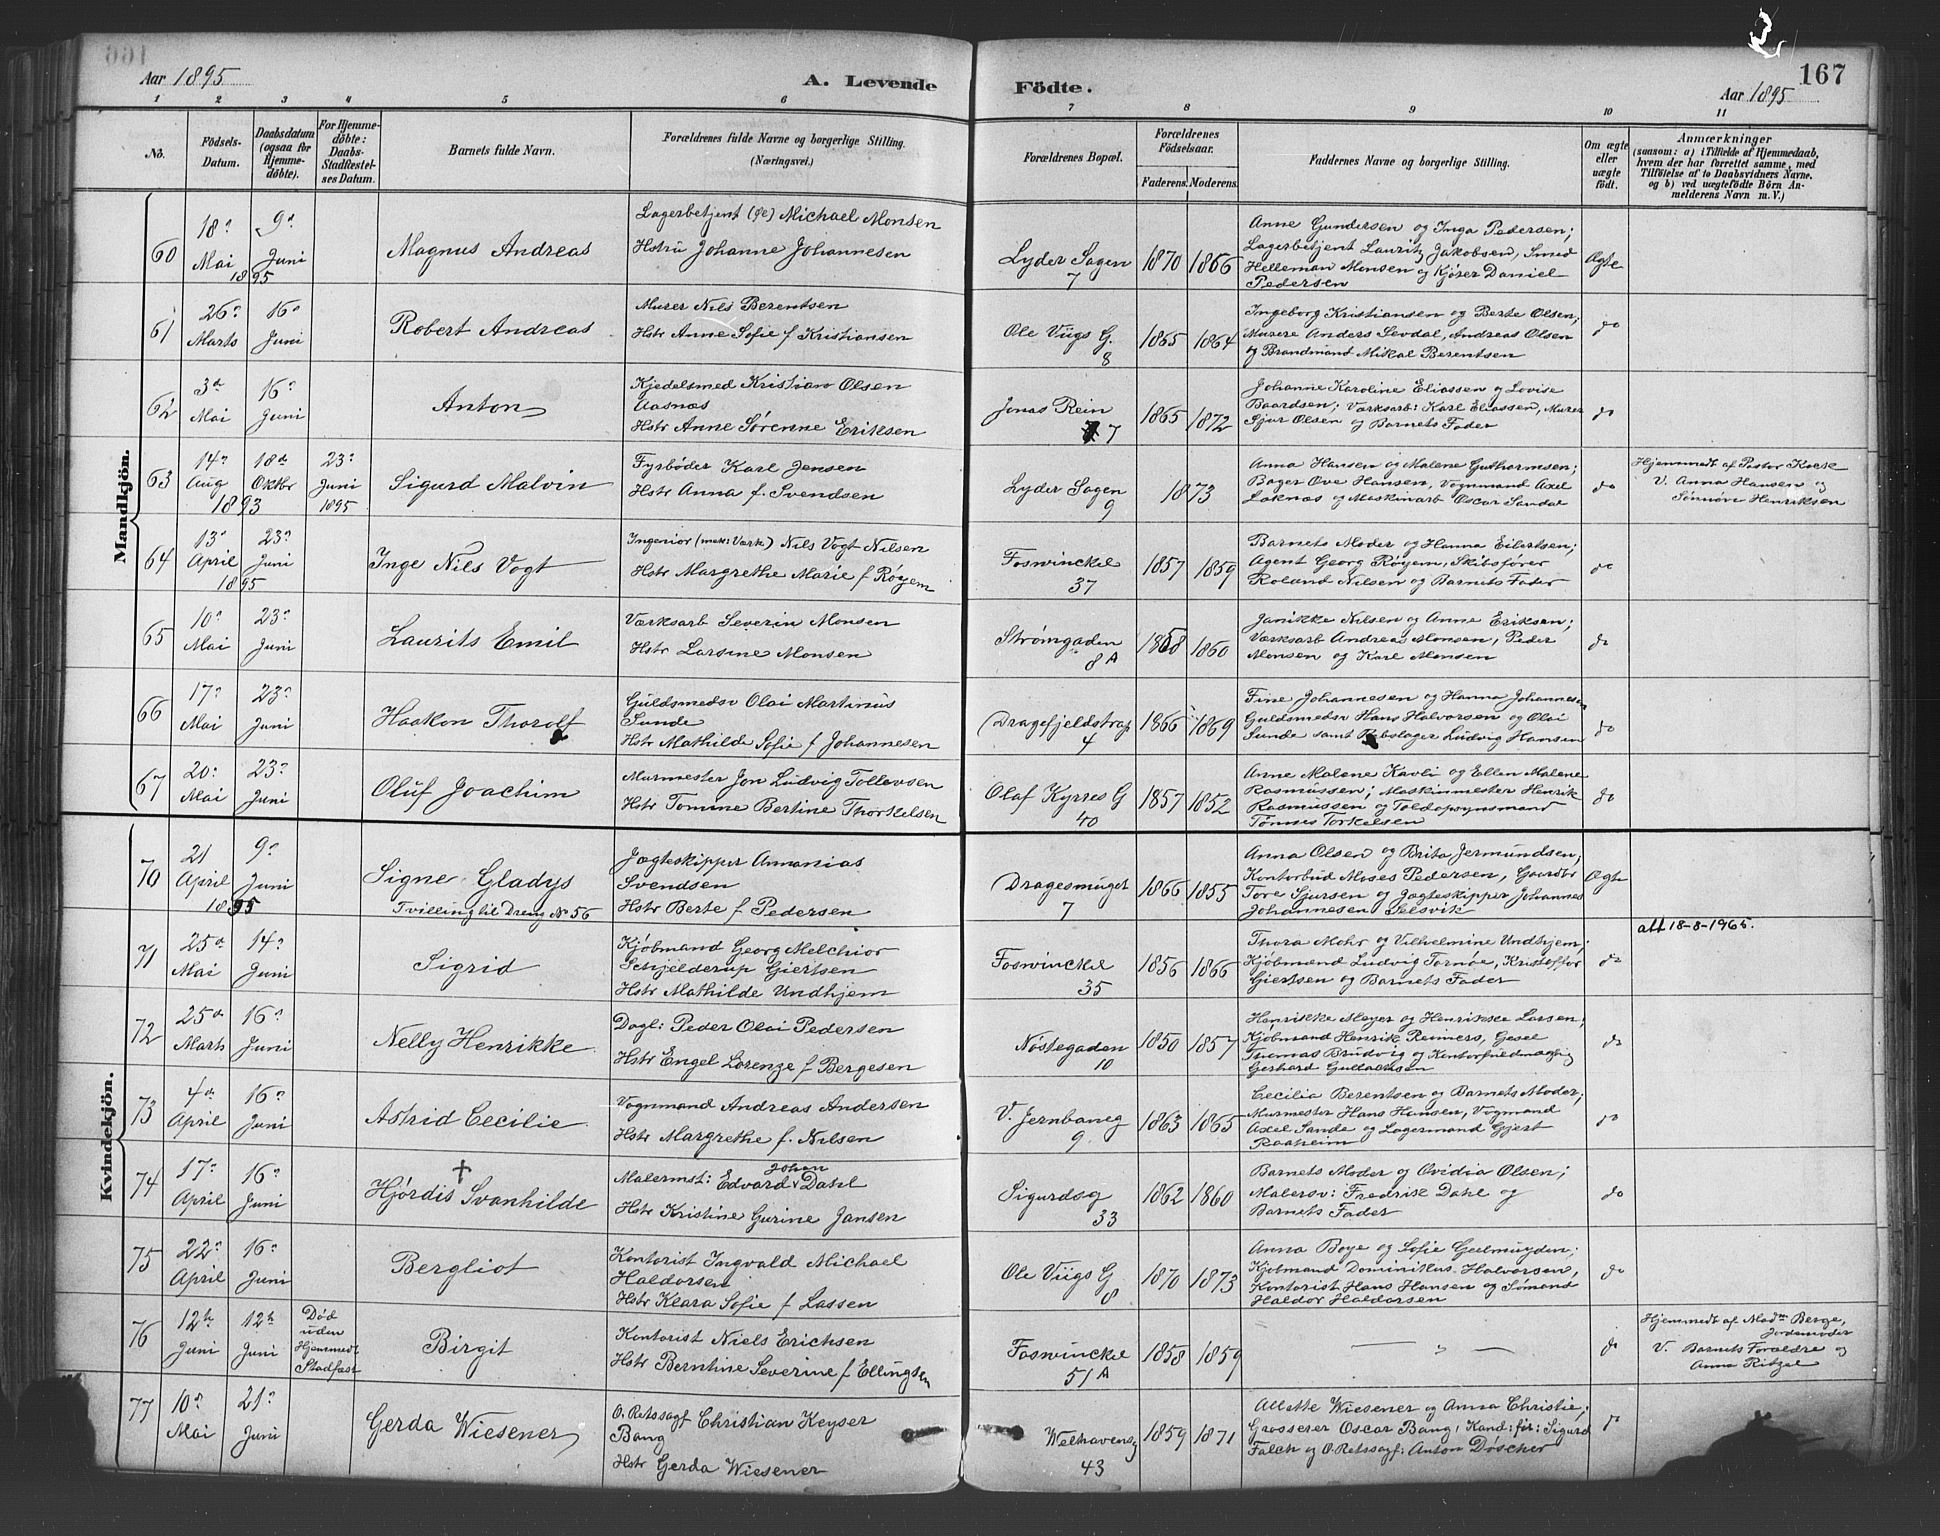 Aar 1895 A. Levende Födte. Aar 1895 167
1 2 3 4 5 6 7 8 9 10 11
No. Födsels-Datum. Daabsdatum (ogsaa for Hjemme-döbte). For Hjemme-döbte: Daabs-Stadfæstel-ses Datum. Barnets fulde Navn. Forældrenes fulde Navne og borgerlige Stilling. (Næringsvei.) Forældrenes Bopæl. Forældrenes Födselsaar. Faderens. Moderens. Faddernes Navne og borgerlige Stilling. Om ægte eller uægte födt. Anmærkninger (saasom: a) i Tilfælde af Hjemmedaab, hvem der har forrettet samme, med Tilföielse af to Daabsvidners Navne. og b) ved uægtefödte Börn An-melderens Navn m. V.)
Mandkjön.
60 18d Mai 1895 9d Juni Magnus Andreas
Lagerbetjent (øl) Michael Monsen
Hstru Johanne Johannesen
Lyder Sagen 7 1870 1866
Anne Gundersen og Inga Pedersen;
Lagerbetjent Lauritz Jakobsen, Smed
Helleman Monsen og Kjører Daniel
Pedersen
Ægte
61 26d Marts 16d Juni Robert Andreas
Murer Nils Berentsen
Hstr Anne Sofie f Kristiansen
Ole Viigs G. 8 1865 1864
Ingeborg Kristiansen og Berte Olsen;
Murere Anders Sevdal, Andreas Olsen
og Brandmand Mikal Berentsen
do
62 3d Mai 16d Juni Anton
Kjedelsmed Kristian Olsen
Aasnæs
Hstr Anne Sørenne Eriksen
Jonas Rein 7 1865 1872
Johanne Karoline Eliassen og Lovise
Baardsen; Værksarb: Karl Eliassen, Murer
Sjur Olsen og Barnets Fader
do
63 14d Aug 18d Oktbr 1893 23d Juni 1895 Sigurd Malvin
Fyrbøder Karl Jensen
Hstr Anna f. Svendsen
Lyder Sagen 9 1873
Anna Hansen og Malene Guthormsen;
Bager Ove Hansen, Vognmand Axel
Laknæs og Maskinarb Oscar Sandal
do
Hjemmedt af Pastor Kock
V. Anna Hansen og
Sønnøve Henriksen
64 13d April 1895 23d Juni Inge Nils Vogt
Ingeniør (mek: Værk.) Nils Vogt Nilsen
Hstr Margrethe Marie f Røyem
Foswinckel 37 1857 1859
Barnets Moder og Hanna Eilertsen;
Agent Georg Røyem, Skibsfører
Roland Nilsen og Barnets Fader
do
65 10d Mai 23d Juni Laurits Emil
Værksarb Severin Monsen
Hstr Larsine Monsen
Strømgaden 8 A 1868 1860
Janikke Nilsen og Anne Eriksen;
Værksarb Andreas Monsen, Peder
Monsen og Karl Monsen
do
66 17d Mai 23d Juni Haakon Thorolf
Guldsmedsv Olai Martinus
Sunde
Hstr Mathilde Sofie f Johannesen
Dragefjeldstrap 4 1866 1869
Fine Johannesen og Hanna Johannesen
Guldsmedsv Hans Halvorsen og Olai
Sunde samt Rebslager Ludvig Hansen
do
67 20d Mai 23d Juni Oluf Joachim
Murmester Jon Ludvig Tollevsen
Hstr Tomine Bertine Thorkelsen
Olaf Kyrres G 40 1857 1852
Anne Malene Kavli og Ellen Malene
Rasmussen; Maskinmester Henrik
Rasmussen og Toldopsynsmand
Tønnes Torkelsen
do
Kvindekjön.
70 21 April 1895 9d Juni Signe Gladys
Tvilling til Dreng No 56
Jægteskipper Annanias
Svendsen
Hstr Berte f Pedersen
Dragesmuget 7 1866 1855
Anna Olsen og Brita Jermundsen;
Kontorbud Moses Pedersen, Gaardbr
Tore Sjursen og Jægteskipper Johannes
Johannesen Selsvik
Ægte
71 25d Mai 14d Juni Sigrid
Kjøbmand Georg Melchior
Schjelderup Giertsen
Hstr Mathilde Undhjem
Foswinckel 35 1856 1866
Thora Mohr og Vilhelmine Undhjem;
Kjøbmænd Ludvig Tornøe, Kristoffer
Giertsen og Barnets Fader
do
att 18-8-1965.
72 25d Marts 16d Juni Nelly Henrikke
Dagl: Peder Olai Pedersen
Hstr Engel Lorenze f Bergesen
Nøstegaden 10 1850 1857
Henrikke Meyer og Henrikke Larsen;
Kjøbmand Henrik Reimers, Gesel
Thomas Brudvig og Kontorfuldmægtig
Gerhard Gullachsen
do
73 4d April 16d Juni Astrid Cecilie
Vognmand Andreas Andersen
Hstr Margrethe f. Nilsen
V. Jernbaneg 9 1863 1865
Cecilia Berentsen og Barnets Moder;
Murmester Hans Hansen, Vogmand
Axel Sande og Lagermand Gjert
Raaheim
do
74 17d April 16d Juni Hjørdis † Svanhilde
Malermst: Edvard Johan Dahl
Hstr Kristine Gurine Jansen
Sigurdsg 33 1862 1860
Barnets Moder og Ovidia Olsen;
Malersv: Fredrik Dahl og
Barnets Fader
do
75 22d April 16d Juni Bergliot
Kontorist Ingvald Michael
Haldorsen
Hstr Klara Sofie f Lassen
Ole Viigs G 8 1870 1873
Anna Boye og Sofie Geelmuyden;
Kjøbmand Dominikus Halvorsen,
Kontorist Hans Hansen og Sømand
Haldor Haldorsen
do
76 12te Juni 12te Juni Død uden Hjemmedt Stadfæst Birgit
Kontorist Niels Erichsen
Hstr Bernhine Severine f Ellingsen
Foswinckel 51 A 1858 1859
— " —
do
Hjemmedt af Madm Berge,
Jordemoder
V. Barnets Forældre og
Anna Ritzel
77 10d Mai 21d Juni Gerda Wiesener
O. Retssagf Christian Keyser
Bang
Hstr Gerda Wiesener
Welhavensg 43 1859 1871
Allette Wiesener og Anna Christie;
Grosserer Oscar Bang, Kand: før: Sigurd
Falch og O. Retssagf: Anton Døscher
do